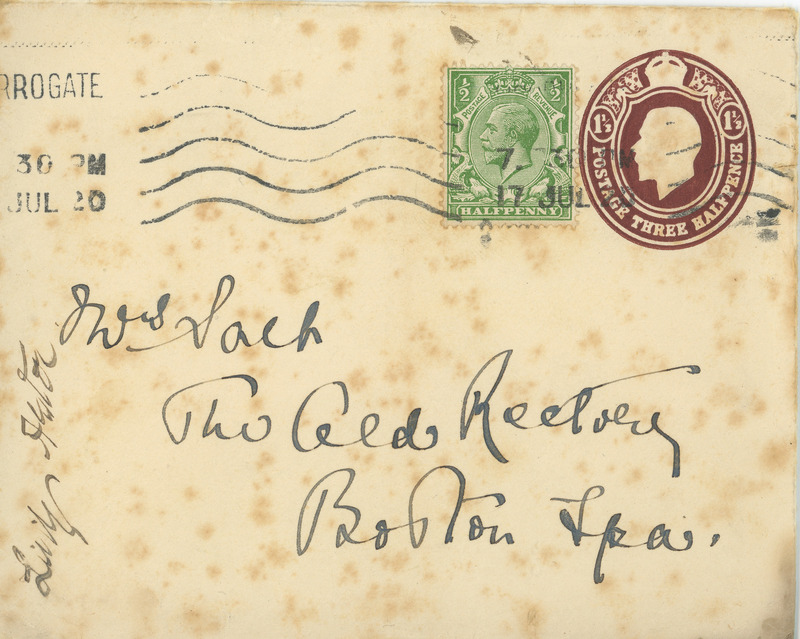 RROGATE
30 PM
JUL 20
½ ½
POSTAGE REVENUE
HALFPENNY
7. 30 PM
17 JUL 20
1½ 1½
POSTAGE THREE HALFPENCE
Mrs
The Old Rectory
Boston Spa.